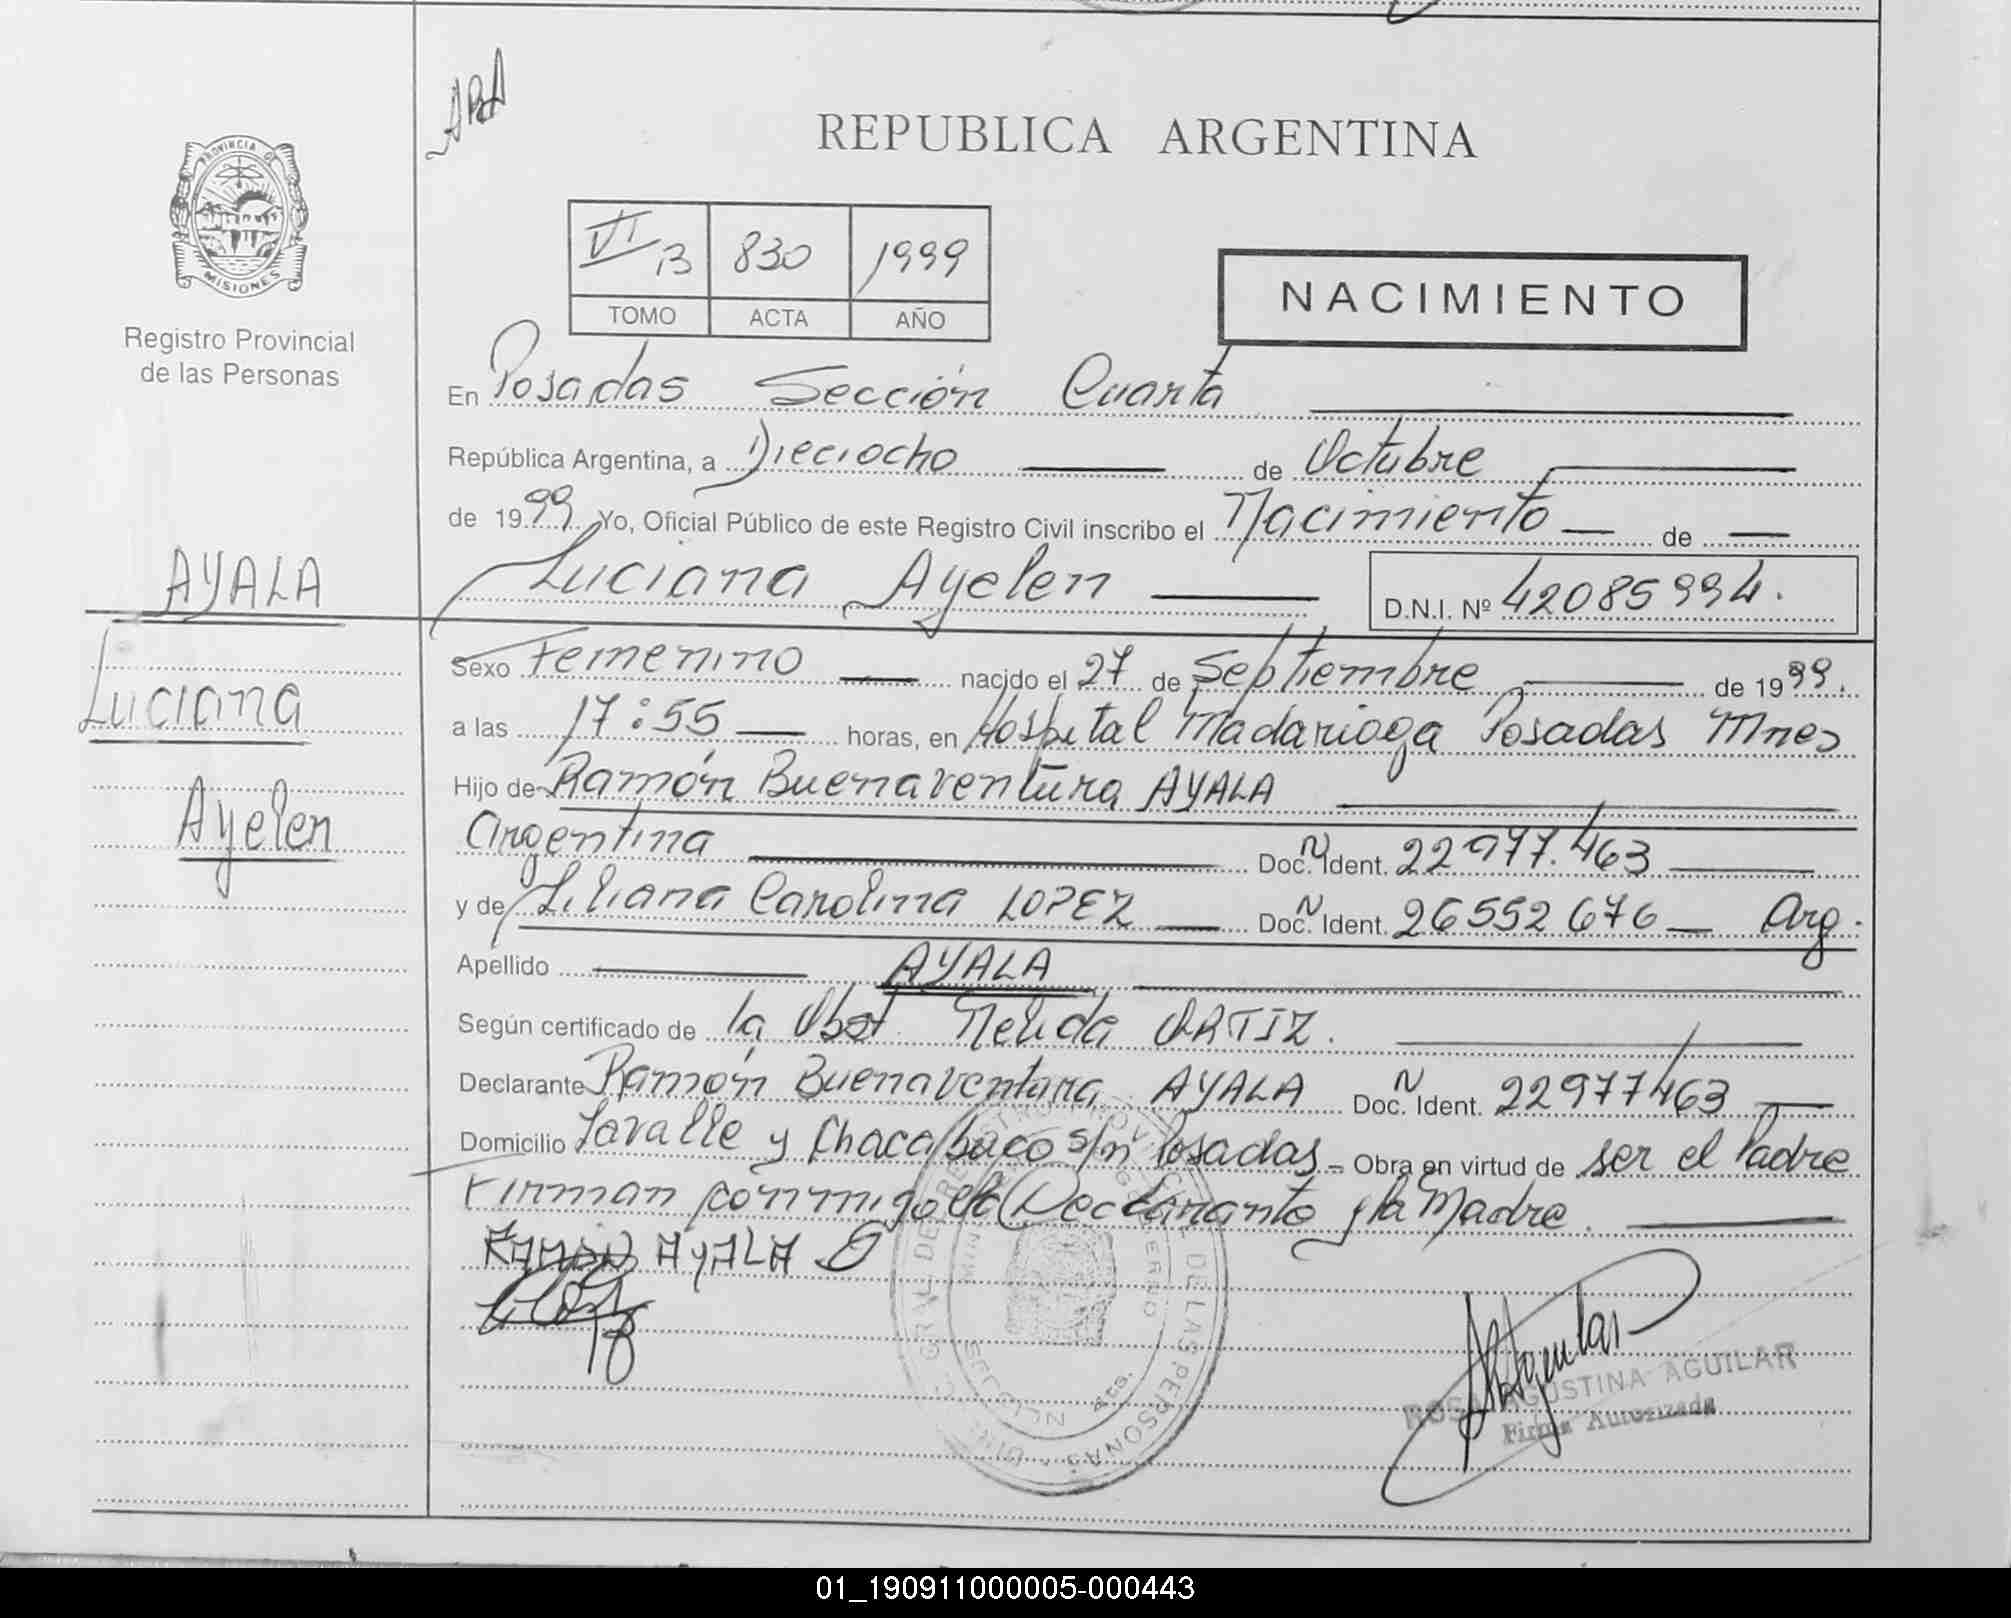 REPUBLICA ARGENTINA
PROVINCIA DE
MISIONES
Registro Provincial
de las Personas
VI B 830 1999
TOMO ACTA AÑO
NACIMIENTO
En Posadas Sección Cuarta
República Argentina, a Dieciocho de Octubre
de 1999 Yo, Oficial Público de este Registro Civil inscribo el Nacimiento de
Luciana Ayelen D.N.I. Nº 42085994.
AYALA
Luciana
Ayelen
Sexo Femenino nacido el 27 de Septiembre de 1999.
a las 17:55 horas, en Hospital Madariaga Posadas Mnes
Hijo de Ramón Buenaventura AYALA
Argentina Doc. Ident. 22977.463
y de Liliana Carolina LOPEZ Doc. Ident. 26552676 Arg.
Apellido AYALA
Según certificado de la Obst. Nelida ORTIZ.
Declarante Ramón Buenaventura AYALA Doc. Ident. 22977463
Domicilio Lavalle y Chacabuco s/n Posadas - Obra en virtud de ser el Padre
Firman conmigo el Declarante y la Madre.
RAMON AYALA
ROSA AGUSTINA AGUILAR
Firma Autorizada
01_190911000005-000443